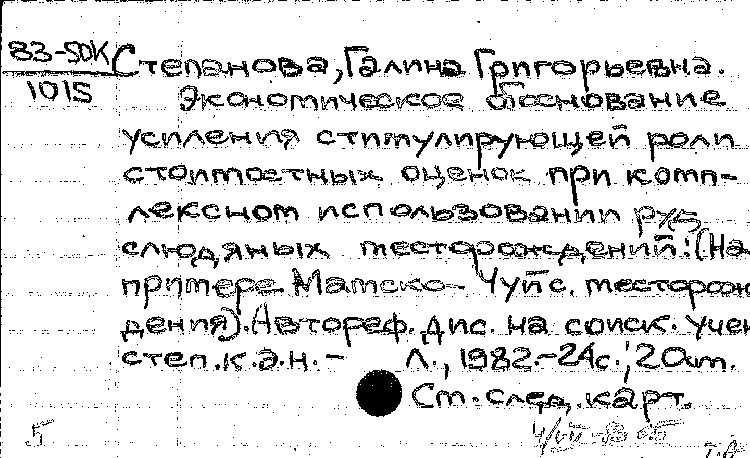 83-5DK
1015
Степанова, Галина Григорьевна.
Экономическое обоснование
усиления стимулирующей роли
стоимостных оценок при комп-
лексном использовании
слюдяных месторождений: (На
примере Мамско-Чуйс. месторож
дения). Автореф. дис. на соиск. учен
степ. к.э.н. - Л., 1982.-24с.; 20см.
См. след. карт.
5